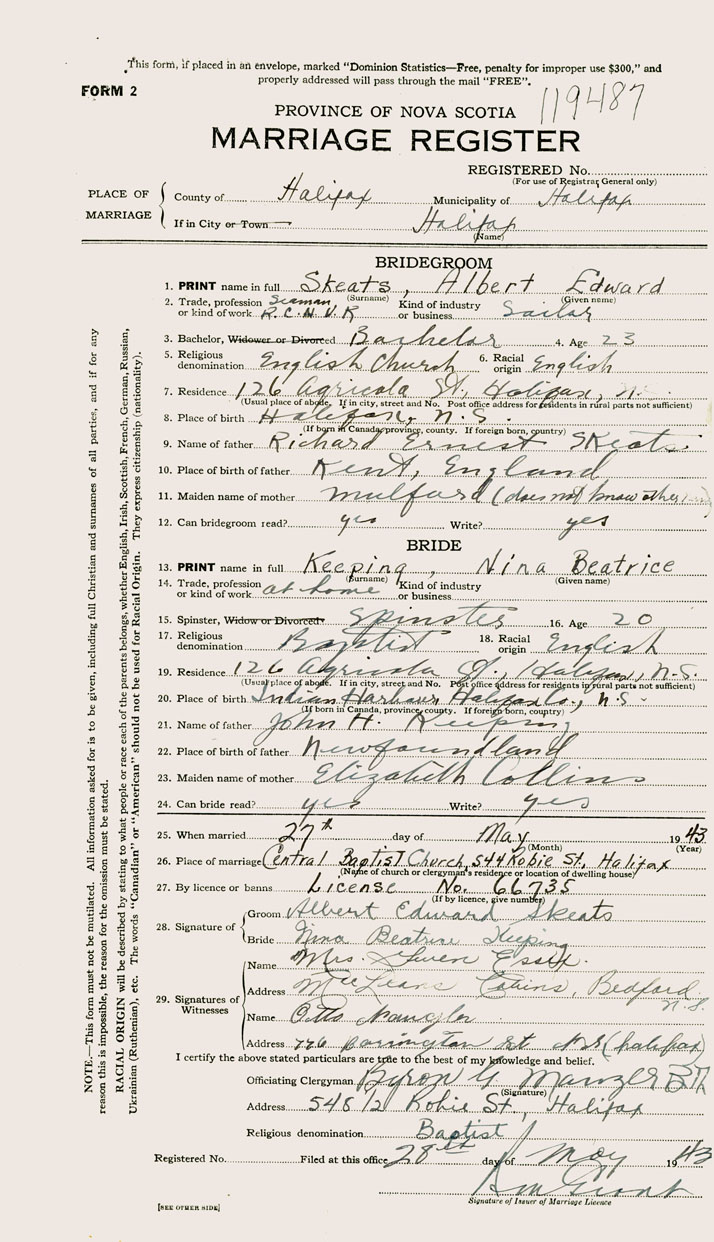 This form, if placed in an envelope, marked "Dominion Statistics—Free, penalty for improper use $300," and
properly addressed will pass through the mail "FREE".
FORM 2
119487
PROVINCE OF NOVA SCOTIA
MARRIAGE REGISTER
REGISTERED No.
(For use of Registrar General only)
PLACE OF MARRIAGE
County of Halifax Municipality of Halifax
If in City or Town Halifax
(Name)
BRIDEGROOM
1. PRINT name in full Skeats, Albert Edward
(Surname) (Given name)
2. Trade, profession or kind of work Seaman, R.C.N.V.R Kind of industry or business Sailor
3. Bachelor, Widower or Divorced Bachelor 4. Age 23
5. Religious denomination English Church 6. Racial origin English
7. Residence 126 Agricola St, Halifax, N.
(Usual place of abode. If in city, street and No. Post office address for residents in rural parts not sufficient)
8. Place of birth Halifax, N.S.
(If born in Canada, province, county. If foreign born, country)
9. Name of father Richard Ernest Skeats
10. Place of birth of father Kent, England
11. Maiden name of mother Mulford (does not know other
12. Can bridegroom read? yes Write? yes
BRIDE
13. PRINT name in full Keeping, Nina Beatrice
(Surname) (Given name)
14. Trade, profession or kind of work at home Kind of industry or business
15. Spinster, Widow or Divorced: Spinster 16. Age 20
17. Religious denomination Baptist 18. Racial origin English
19. Residence 126 Agricola St., Halifax, N.S.
(Usual place of abode. If in city, street and No. Post office address for residents in rural parts not sufficient)
20. Place of birth Indian Harbour, Halifax Co., N.S.
(If born in Canada, province, county. If foreign born, country)
21. Name of father John H. Keeping
22. Place of birth of father Newfoundland
23. Maiden name of mother Elizabeth Collins
24. Can bride read? yes Write? yes
25. When married 27th day of May 1943
(Month) (Year)
26. Place of marriage Central Baptist Church, 544 Robie St, Halifax
(Name of church or clergyman's residence or location of dwelling house)
27. By licence or banns License No. 66735
(If by licence, give number)
28. Signature of
Groom Albert Edward Skeats
Bride Nina Beatrice Keeping
29. Signatures of Witnesses
Name Mrs. Gwen Essex.
Address Cabins, Bedford N.S.
Name
Address 776 Barrington St N.S (halifax)
I certify the above stated particulars are true to the best of my knowledge and belief.
Officiating Clergyman Byron G Manzer
(Signature)
Address 548 1/2 Robie St, Halifax
Religious denomination Baptist
Registered No. Filed at this office 28th day of May 1943
Signature of Issuer of Marriage Licence
[SEE OTHER SIDE]
NOTE.—This form must not be mutilated. All information asked for is to be given, including full Christian and surnames of all parties, and if for any
reason this is impossible, the reason for the omission must be stated.
RACIAL ORIGIN will be described by stating to what people or race each of the parents belongs, whether English, Irish, Scottish, French, German, Russian,
Ukrainian (Ruthenian), etc. The words "Canadian" or "American" should not be used for Racial Origin. They express citizenship (nationality).